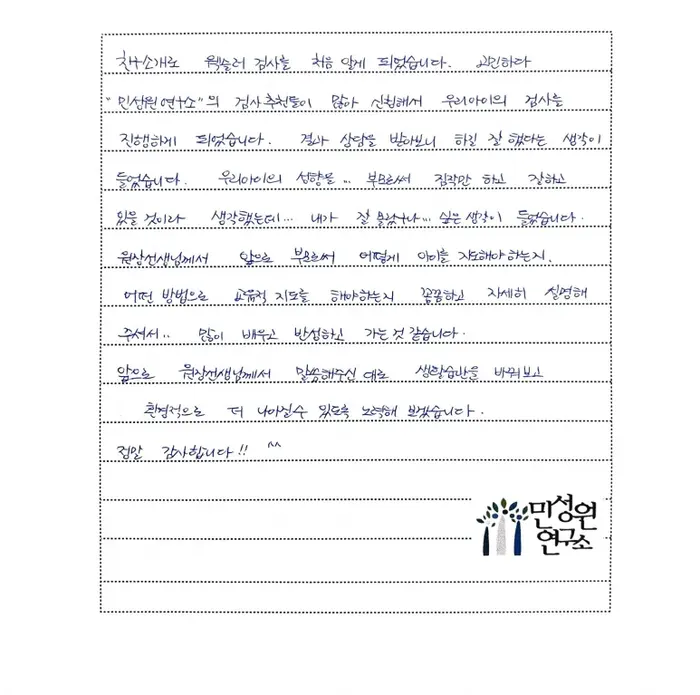 친구소개로 웩슬러 검사를 처음 알게 되었습니다. 고민하다
"민성원연구소"의 검사추천들이 많아 신청해서 우리아이의 검사를
진행하게 되었습니다. 결과 상담을 받아보니 하길 잘 했다는 생각이
들었습니다. 우리아이의 성향을... 부모로써 짐작만 하고 잘하고
있을것이라 생각했는데... 내가 잘 몰랐구나... 싶은 생각이 들었습니다.
원장선생님께서 앞으로 부모로써 어떻게 아이를 지도해야하는지,
어떤 방법으로 교육적 지도를 해야하는지 꼼꼼하고 자세히 설명해
주셔서.. 많이 배우고 반성하고 가는것 같습니다.
앞으로 원장선생님께서 말씀해주신 대로 생활습관을 바꿔보고
환경적으로 더 나아질수 있도록 노력해 보겠습니다.
정말 감사합니다!! ^^
민성원
연구소